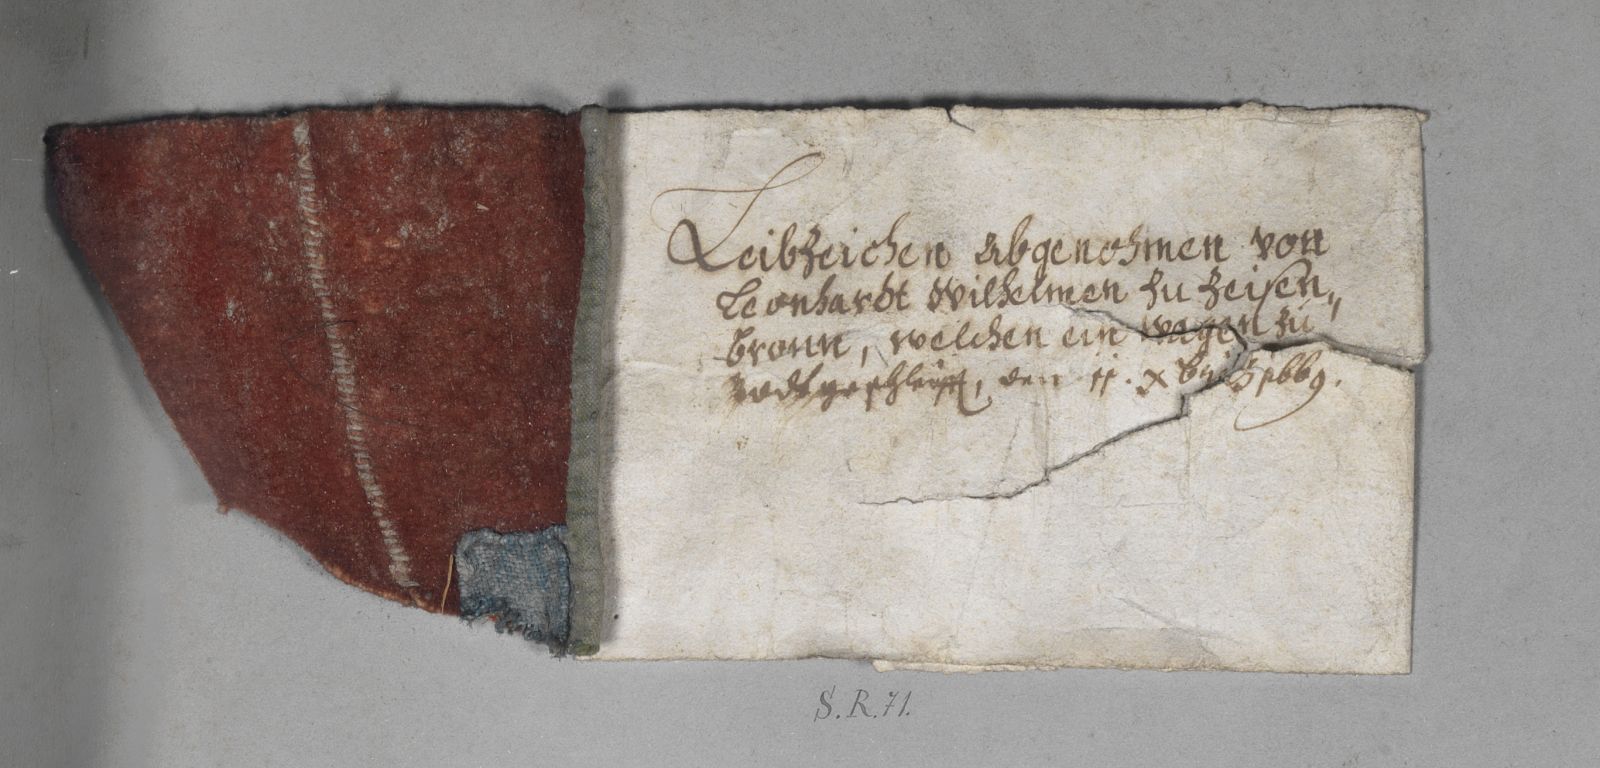 Leibzeichen abgenohmen von
Leonhardt Wilhelmen zu Zeisen„
bronn, welchen ein Wagen zu
todt geschleifft, den 11. Xbris 1669.
S. R. 71.